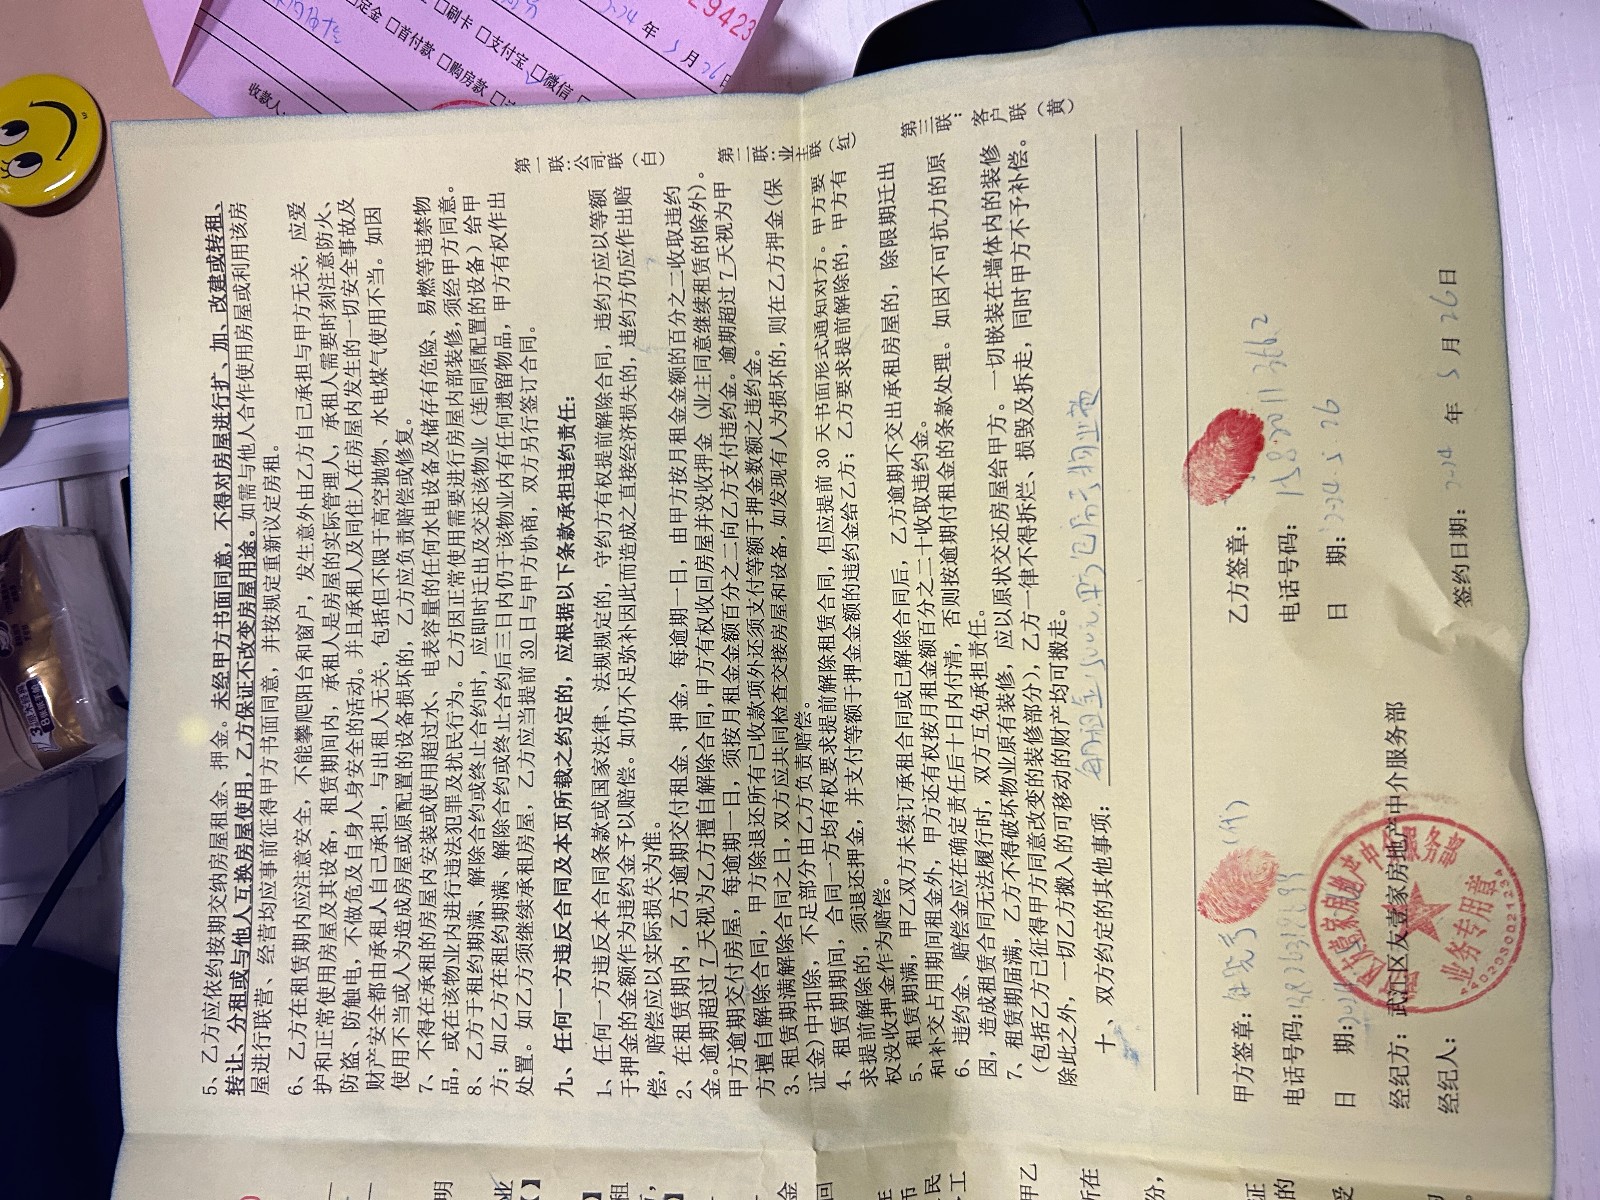 5、乙方应依约按期交纳房屋租金、押金。未经甲方书面同意，不得对房屋进行扩、加、改建或转租、
转让、分租或与他人互换房屋使用，乙方保证不改变房屋用途。如需与他人合作使用房屋或利用该房
屋进行联营、经营均应事前征得甲方书面同意，并按规定重新议定房租。
6、乙方在租赁期内应注意安全，不能攀爬阳台和窗户，发生意外由乙方自己承担与甲方无关，应爱
护和正常使用房屋及其设备，租赁期间内，承租人是房屋的实际管理人，承租人需要时刻注意防火、
防盗、防触电，不做危及自身人身安全的活动。并且承租人及同住人在房屋内发生的一切安全事故及
财产安全都由承租人自己承担，与出租人无关，包括但不限于高空抛物、水电煤气使用不当。如因
使用不当或人为造成房屋或原配置的设备损坏的，乙方应负责赔偿或修复。
7、不得在承租的房屋内安装或使用超过水、电表容量的任何水电设备及储存有危险、易燃等违禁物
品，或在该物业内进行违法犯罪及扰民行为。乙方因正常使用需要进行房屋内部装修，须经甲方同意。
8、乙方于租约期满、解除合约或终止合约时，应即时迁出及交还该物业（连同原配置的设备）给甲
方；如乙方在租约期满、解除合约或终止合约后三日内仍于该物业内有任何遗留物品，甲方有权作出
处置。如乙方须继续承租房屋，乙方应当提前 30 日与甲方协商，双方另行签订合同。
九、任何一方违反合同及本页所载之约定的，应根据以下条款承担违约责任：
1、任何一方违反本合同条款或国家法律、法规规定的，守约方有权提前解除合同，违约方应以等额
于押金的金额作为违约金予以赔偿。如仍不足弥补因此而造成之直接经济损失的，违约方仍应作出赔
偿，赔偿应以实际损失为准。
2、在租赁期内，乙方逾期交付租金、押金，每逾期一日，由甲方按月租金金额的百分之二收取违约
金。逾期超过 7 天视为乙方擅自解除合同，甲方有权收回房屋并没收押金（业主同意继续租赁的除外）。
甲方逾期交付房屋，每逾期一日，须按月租金金额百分之二向乙方支付违约金。逾期超过 7 天视为甲
方擅自解除合同，甲方除退还所有已收款项外还须支付等额于押金数额之违约金。
3、租赁期满解除合同之日，双方应共同检查交接房屋和设备，如发现有人为损坏的，则在乙方押金(保
证金)中扣除，不足部分由乙方负责赔偿。
4、租赁期期间，合同一方均有权要求提前解除租赁合同，但应提前 30 天书面形式通知对方。甲方要
求提前解除的，须退还押金，并支付等额于押金金额的违约金给乙方；乙方要求提前解除的，甲方有
权没收押金作为赔偿。
5、租赁期满，甲乙双方未续订承租合同或已解除合同后，乙方逾期不交出承租房屋的，除限期迁出
和补交占用期间租金外，甲方还有权按月租金额百分之二十收取违约金。
6、违约金、赔偿金应在确定责任后十日内付清，否则按逾期付租金的条款处理。如因不可抗力的原
因，造成租赁合同无法履行时，双方互免承担责任。
7、租赁期届满，乙方不得破坏物业原有装修，应以原状交还房屋给甲方。一切嵌装在墙体内的装修
（包括乙方已征得甲方同意改变的装修部分），乙方一律不得拆烂、损毁及拆走，同时甲方不予补偿。
除此之外，一切乙方搬入的可移动的财产均可搬走。
十、双方约定的其他事项：
甲方签章：
(代)
乙方签章：
电话号码：
电话号码：
日 期：
日 期：2024.5.26
经纪方：武江区友壹家房地产中介服务部
经纪人：
签约日期：2024 年 5 月 26 日
第一联：公司联（白）
第二联：业主联（红）
第三联：客户联（黄）
业务专用章
29423
年 5 月 26 日
定金 □首付款 □购房款
□刷卡 □支付宝 □微信
收款人